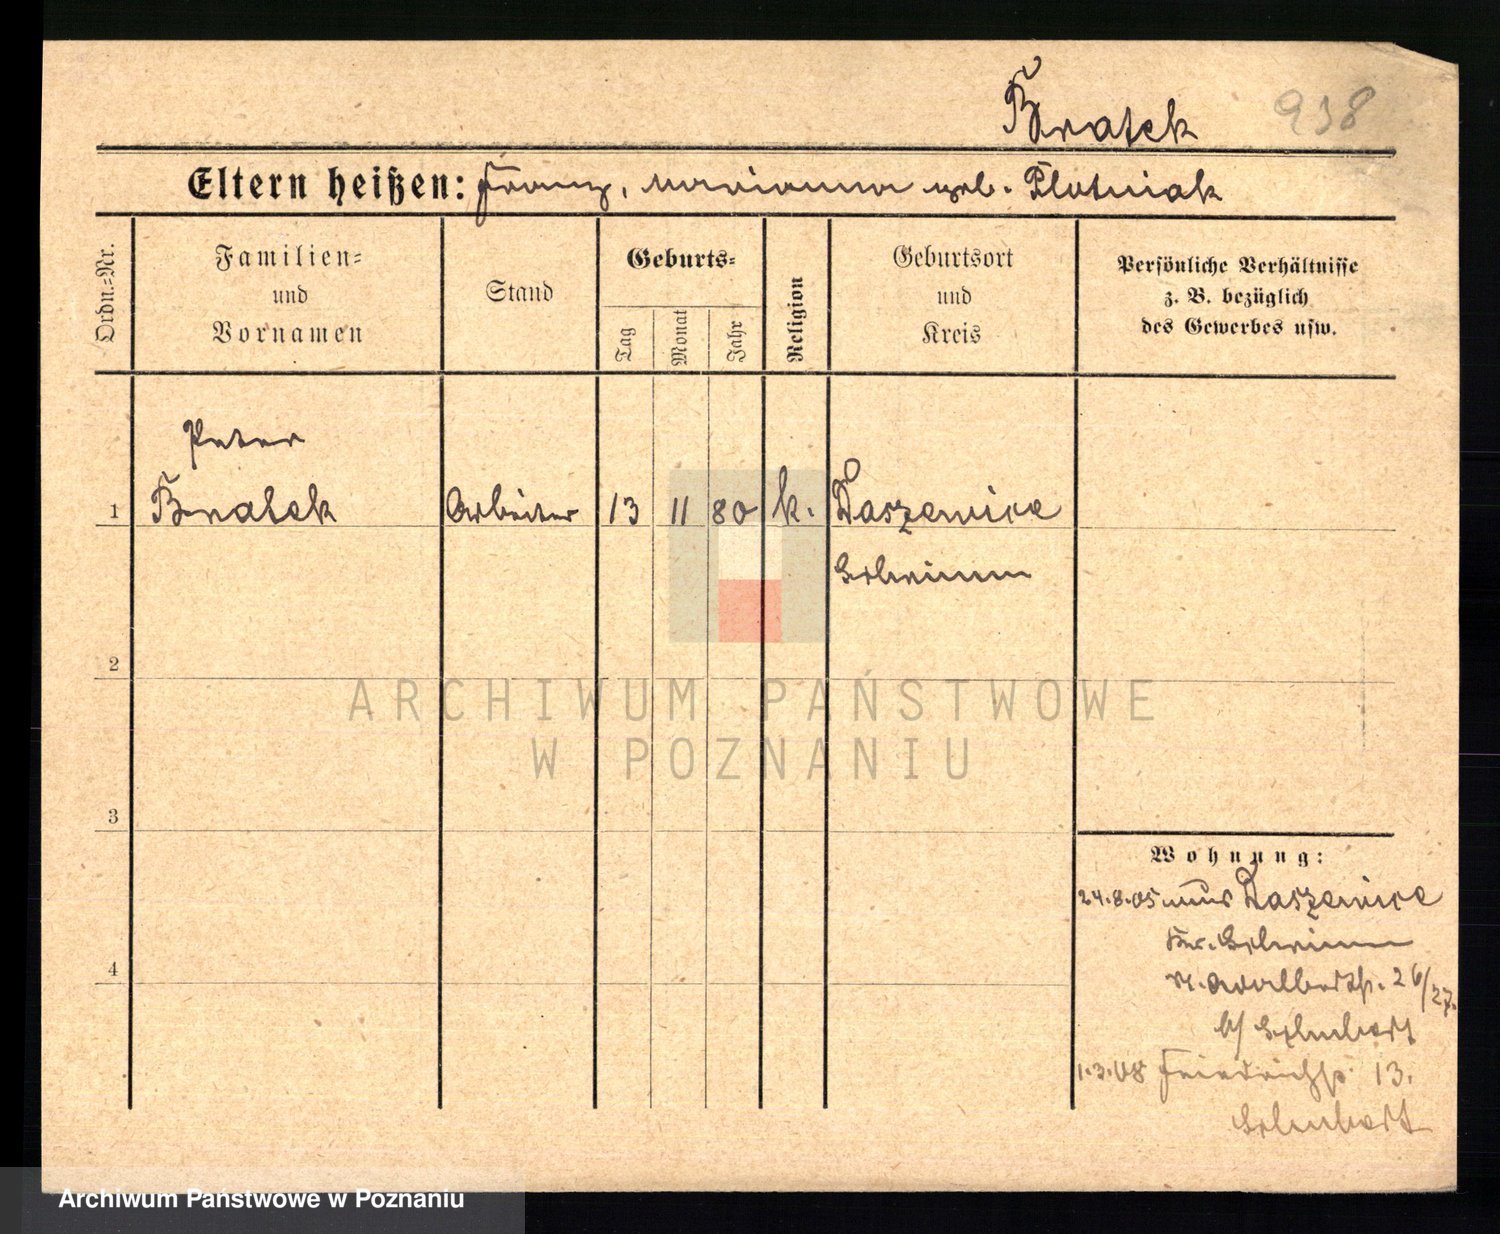 Bratek 938
Eltern heißen: Franz, Marianna geb. Plotniak
Ordn.-Nr.
Familien-
und
Vornamen
Stand
Geburts-
Tag
Monat
Jahr
Religion
Geburtsort
und
Kreis
Persönliche Verhältnisse
z. B. bezüglich
des Gewerbes usw.
Peter
1 Bratek Arbeiter 13 11 80 k. Daszewice
Schrimm
2
ARCHIWUM PAŃSTWOWE
W POZNANIU
3
Wohnung:
24.8.05 aus Daszewice
Kr. Schrimm
26/27.
b/ Schubert
4
1.3.08 Friedrichstr. 13.
Schubert
Archiwum Państwowe w Poznaniu